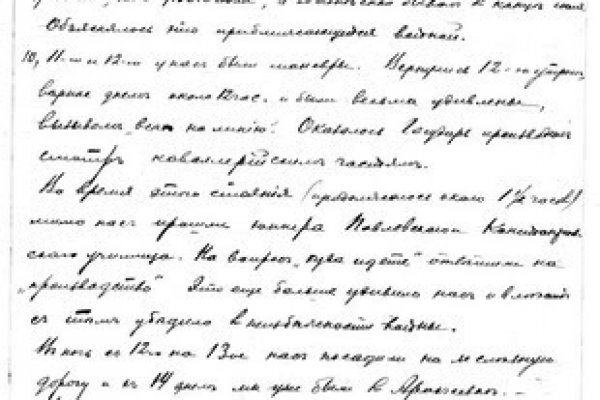 Объяснялось это приближающейся войной.
10, 11-го и 12-го у нас были маневры. Вернулись 12-го утром,
вернее днем около 12 час. и были весьма удивлены,
вызовом „всех на линию". Оказалось Государь производил
смотр кавалерийским частям.
Во время этого стояния (продолжалось около 1½ часов)
мимо нас прошли юнкера Павловского
ского училища. На вопрос „куда идете" ответили на
„производство" Это еще больше удивило нас и
с тем убедило в неизбежности войны.
В ночь с 12го на 13ое нас посадили на железную
дорогу и в 14 днем мы уже были в